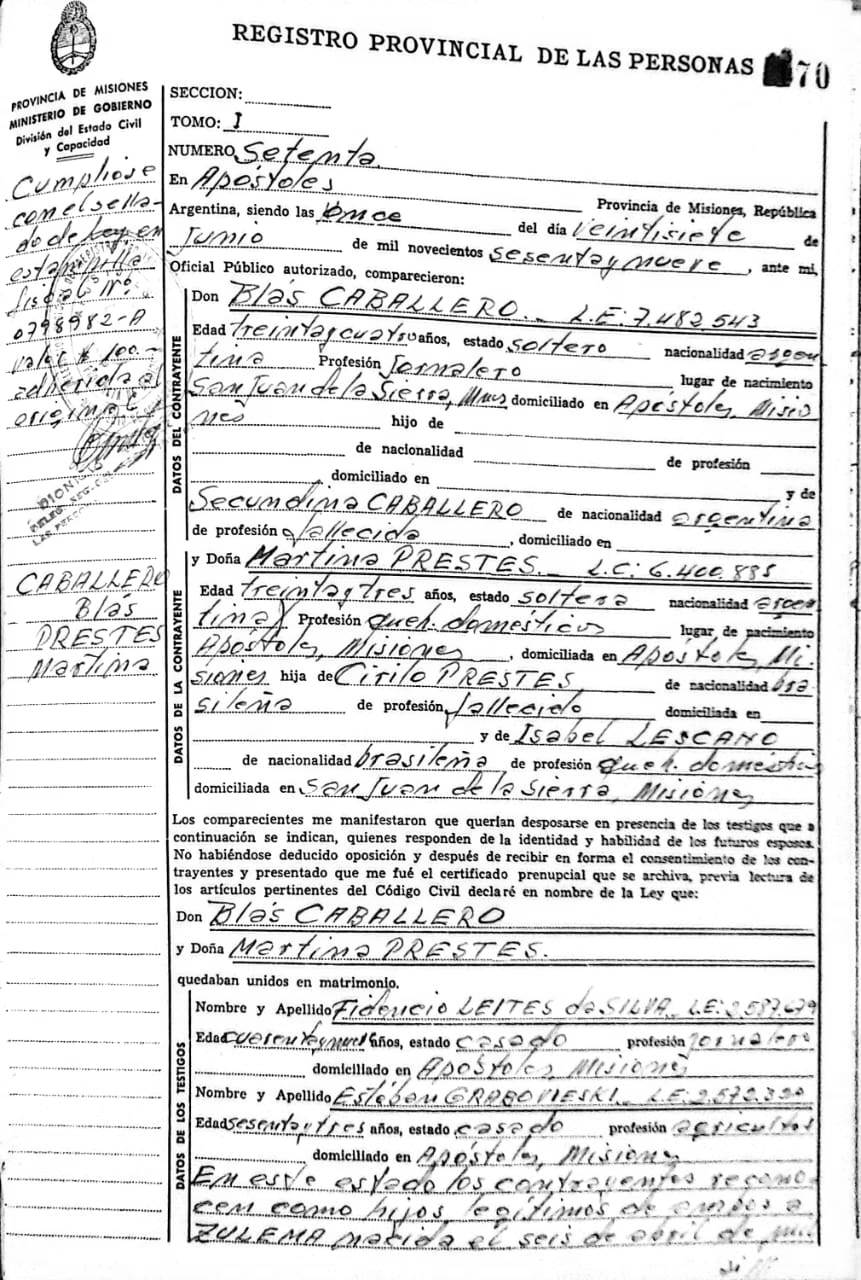 REGISTRO PROVINCIAL DE LAS PERSONAS 70
PROVINCIA DE MISIONES
MINISTERIO DE GOBIERNO
División del Estado Civil
y Capacidad
Cumplióse
con el sella-
do de Ley en
estampilla
fiscal Nº
0798982-A
valor $ 100.-
adherida al
original
CABALLERO
Blás
PRESTES
Martina
SECCION:
TOMO: I
NUMERO Setenta
En Apóstoles
Provincia de Misiones, República
Argentina, siendo las once del día veintisiete de
Junio de mil novecientos sesenta y nueve, ante mi,
Oficial Público autorizado, comparecieron:
DATOS DEL CONTRAYENTE
Don Blás CABALLERO.- L.E: 7.482.543
Edad treinta y cuatro años, estado soltero nacionalidad argen
tina Profesión Jornalero lugar de nacimiento
San Juan de la Sierra, Mnes domiciliado en Apóstoles, Misio
nes hijo de
de nacionalidad de profesión
, domiciliado en y de
Secundina CABALLERO de nacionalidad argentina
de profesión fallecida, domiciliado en
DATOS DE LA CONTRAYENTE
y Doña Martina PRESTES.- L.C: 6.400.885
Edad treinta y tres años, estado soltera nacionalidad argen
tina Profesión queh. domésticos lugar de nacimiento
Apóstoles, Misiones, domiciliada en Apóstoles, Mi-
siones hija de Cirilo PRESTES de nacionalidad bra
sileña de profesión fallecido domiciliada en
y de Isabel LESCANO
de nacionalidad brasileña de profesión queh. domésticos
domiciliada en San Juan de la Sierra, Misiones
Los comparecientes me manifestaron que querían desposarse en presencia de los testigos que a
continuación se indican, quienes responden de la identidad y habilidad de los futuros esposos.
No habiéndose deducido oposición y después de recibir en forma el consentimiento de los con-
trayentes y presentado que me fué el certificado prenupcial que se archiva, previa lectura de
los artículos pertinentes del Código Civil declaré en nombre de la Ley que:
Don Blás CABALLERO
y Doña Martina PRESTES.
quedaban unidos en matrimonio.
DATOS DE LOS TESTIGOS
Nombre y Apellido Fidencio LEITES da SILVA L.E: 2.587.679
Edad cuarenta y nueve años, estado casado profesión jornalero
domiciliado en Apóstoles, Misiones
Nombre y Apellido Estéban GRABOVIESKI L.E: 2.572.320
Edad sesenta y tres años, estado casado profesión agricultor
domiciliado en Apóstoles, Misiones
En este estado los contrayentes recono
cen como hijos legítimos de ambos a
ZULEMA nacida el seis de abril de mil